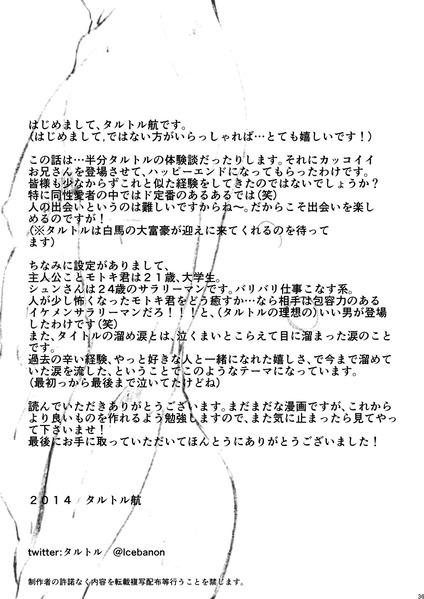 はじめまして、タルトル航です。
(はじめまして,ではない方がいらっしゃれば…とても嬉しいです！)
この話は…半分タルトルの体験談だったりします。それにカッコイイ
お兄さんを登場させて、ハッピーエンドになってもらったわけです。
皆様も少なからずこれと似た経験をしてきたのではないでしょうか？
特に同性愛者の中ではド定番のあるあるでは(笑)
人の出会いというのは難しいですからね〜。だからこそ出会いを楽し
めるのですが！
(※タルトルは白馬の大富豪が迎えに来てくれるのを待って
ます)
ちなみに設定がありまして、
主人公ことモトキ君は２１歳、大学生。
シュンさんは２４歳のサラリーマンです。バリバリ仕事こなす系。
人が少し怖くなったモトキ君をどう癒すか…なら相手は包容力のある
イケメンサラリーマンだろ！！！と、(タルトルの理想の)いい男が登場
したわけです(笑)
また、タイトルの溜め涙とは、泣くまいとこらえて目に溜まった涙のこと
です。
過去の辛い経験、やっと好きな人と一緒になれた嬉しさ、で今まで溜めて
いた涙を流した、ということでこのようなテーマになっています。
(最初っから最後まで泣いてたけどね)
読んでいただきありがとうございます。まだまだな漫画ですが、これから
より良いものを作れるよう勉強しますので、また気に止まったら見てやっ
て下さいませ！
最後にお手に取っていただいてほんとうにありがとうございました！
２０１４　タルトル航
twitter:タルトル　＠Icebanon
制作者の許諾なく内容を転載複写配布等行うことを禁じます。
36